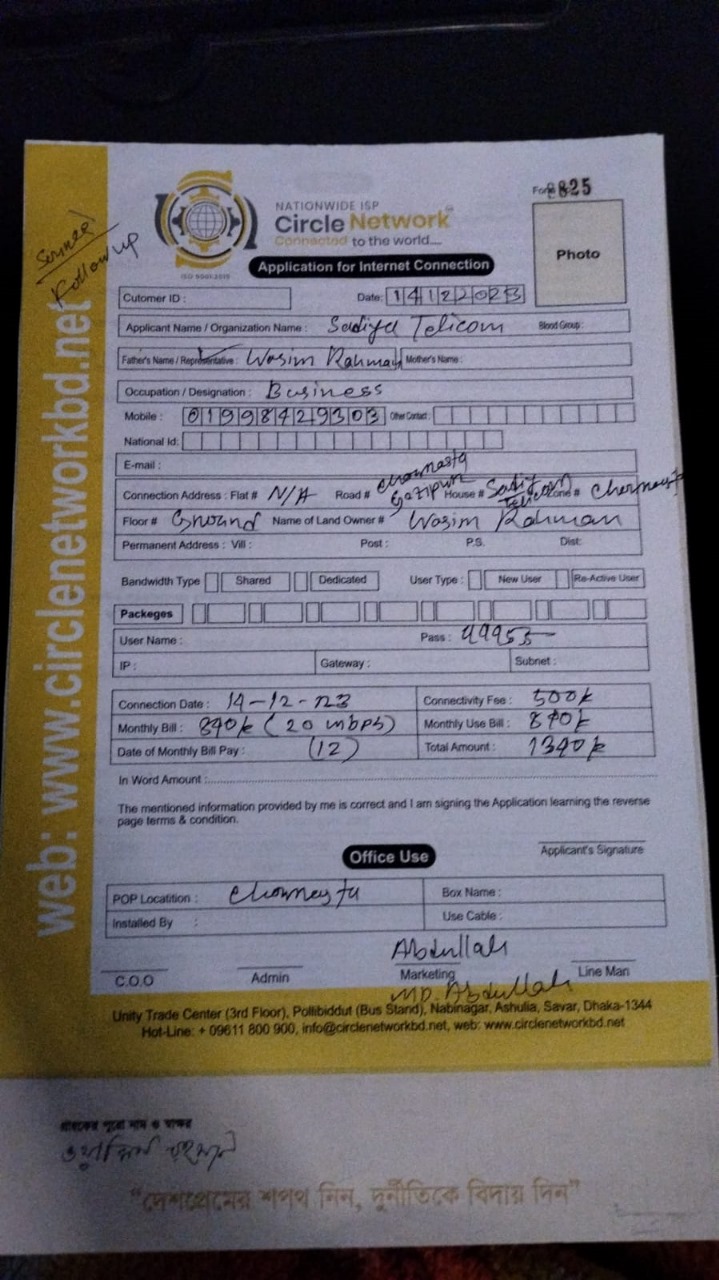 Form 2825
NATIONWIDE ISP
Circle Network
Connected to the world....
ISO 9001:2015
Photo
Follow up
Application for Internet Connection
Cutomer ID : Date: 14122023
Applicant Name / Organization Name : Sadiya Telicom Blood Group :
Father's Name / Representative : Wasim Rahman Mother's Name :
Occupation / Designation : Business
Mobile : 01998429303 Other Contact :
National Id:
E-mail :
Connection Address : Flat # N/A Road # Gazipur House # Telicom Zone #
Floor # Ground Name of Land Owner # Wasim Rahman
Permanent Address : Vill : Post : P.S. Dist:
Bandwidth Type Shared Dedicated User Type : New User Re-Active User
Packeges
User Name : Pass :
IP : Gateway : Subnet :
Connection Date : 14-12-23 Connectivity Fee : 500/=
Monthly Bill : 840/= (20 mbps) Monthly Use Bill : 840/=
Date of Monthly Bill Pay : (12) Total Amount : 1340/=
In Word Amount :
The mentioned information provided by me is correct and I am signing the Application learning the reverse
page terms & condition.
Applicant's Signature
Office Use
POP Locatition : Box Name :
Installed By : Use Cable :
Abdullah
C.O.O Admin Marketing Line Man
MD. Abdullah
Unity Trade Center (3rd Floor), Pollibiddut (Bus Stand), Nabinagar, Ashulia, Savar, Dhaka-1344
Hot-Line: + 09611 800 900, info@circlenetworkbd.net, web: www.circlenetworkbd.net
web: www.circlenetworkbd.net
গ্রাহকের পুরো নাম ও স্বাক্ষর
ওয়াসিম রহমান
"দেশপ্রেমের শপথ নিন, দুর্নীতিকে বিদায় দিন"